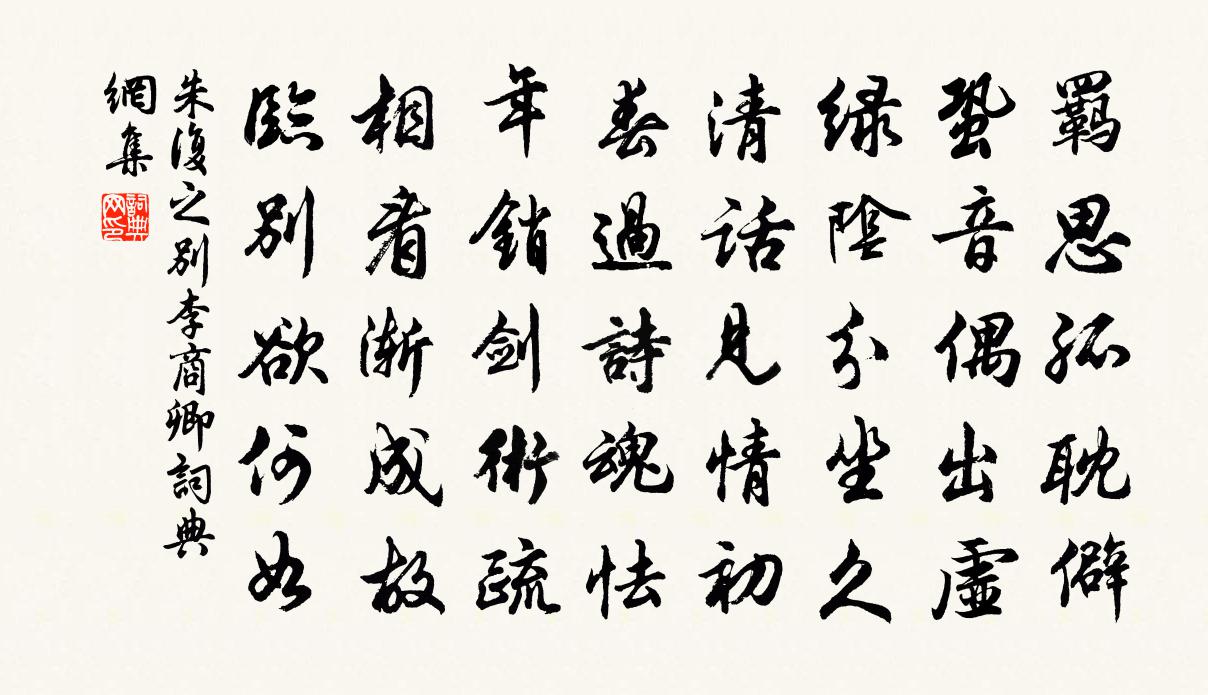 羈思孤耽僻
蛩音偶出虛
緑陰分坐久
清話見情初
春過詩魂怯
年銷劍術疏
相看漸成故
臨別欲何如
朱復之別李商卿詞典
網集
詞典网印